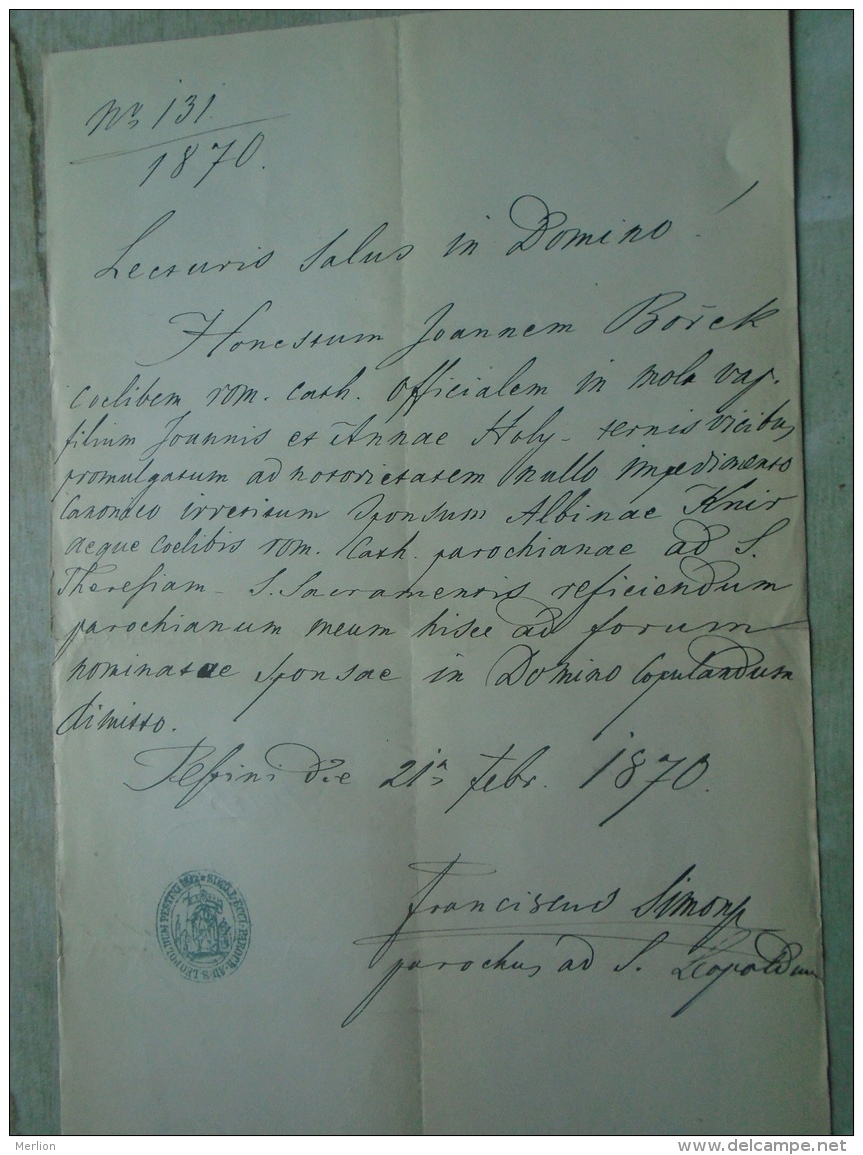 Nrs 131.
1870.
Lecturis Salus in Domino!
Honestum Joannem Bořek
coelibem rom. cath. officialem in mola vap.
filium Joannis et Annae Holy - ternis vicibus
promulgatum ad notorietatem nullo impedimento
Canonico irretitum Sponsum Albinae Knir
aeque Coelibis rom. Cath. parochianae ad S.
Theresiam - S. Sacramentis reficiendum
parochianum meum hisce ad forum
nominatae Sponsae in Domino Copulandum
dimitto.
Pestini die 21a Febr. 1870.
Franciscus Simon
parochus ad S. Leopoldum
SIGILL. ECCL. PAROCH. AD S. LEOPOLDUM PESTINI
Merlion
www.delcampe.net